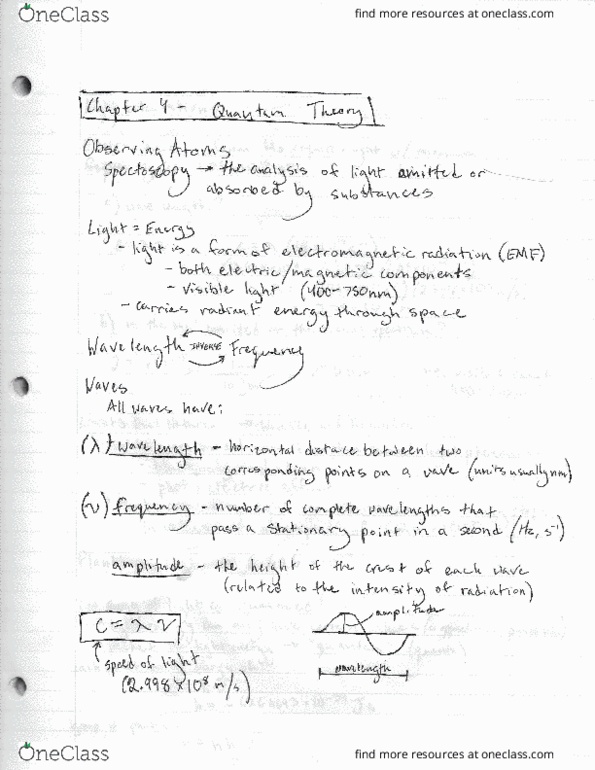 OneClass
find more resources at oneclass.com
Chapter 4 - Quantum Theory
Observing Atoms
Spectoscopy → the analysis of light emitted or
absorbed by substances
Light = Energy
- light is a form of electromagnetic radiation (EMF)
- both electric/magnetic components
- visible light (400-750nm)
- carries radiant energy through space
Wavelength INVERSE Frequency
Waves
All waves have:
(λ) wavelength - horizontal distace between two
corrisponding points on a wave (units usually nm)
(ν) frequency - number of complete wavelengths that
pass a stationary point in a second (Hz, s⁻¹)
amplitude - the height of the crest of each wave
(related to the intensity of radiation)
amplitude
C = λ ν
speed of light
wavelength
(2.998 x 10⁸ m/s)
OneClass
find more resources at oneclass.com